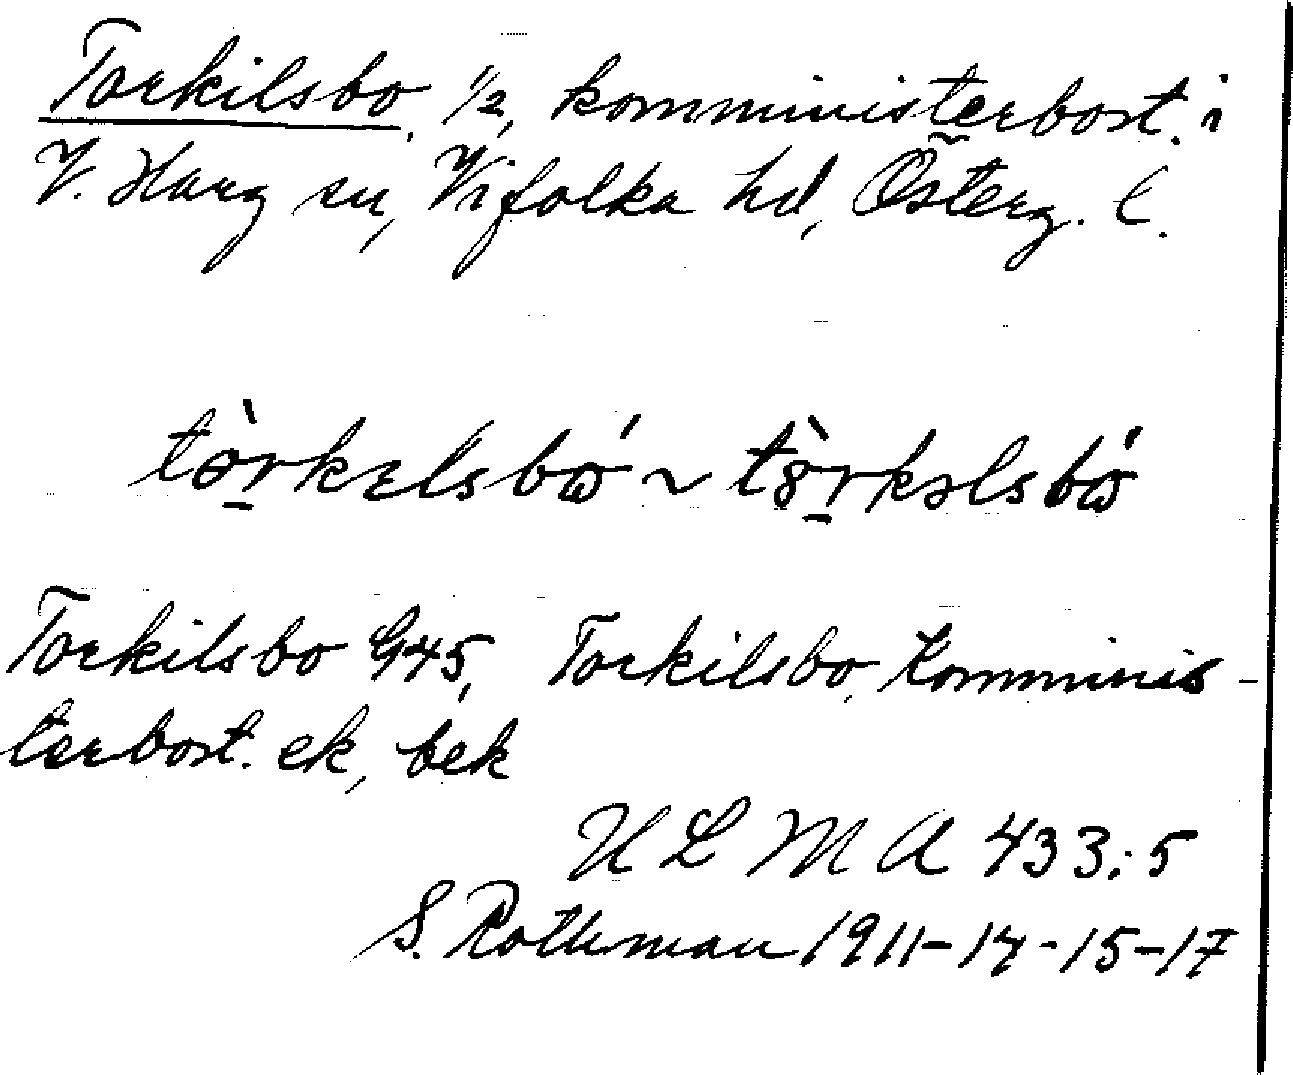 Torkilsbo, 1/2, komministerbost. i
V. Harg sn, Vifolka hd, Österg. l.
tòrkɛlsbɷ́ ~ tò̱rkəlsbɷ́
Torkilsbo G45, Torkilsbo, Komminis-
terbost. ek, bek
ULMA 433:5
S. Rothman 1911-14-15-17